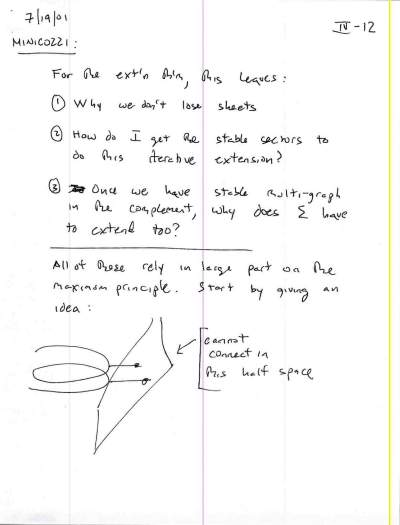 7/19/01
IV-12
MINICOZZI:
For the ext'n thm, this leaves:
① Why we don't lose sheets
② How do I get the stable sectors to
do this iterative extension?
③ Once we have stable multi-graph
in the complement, why does Σ have
to extend too?
All of these rely in large part on the
maximum principle. Start by giving an
idea:
cannot
connect in
this half space